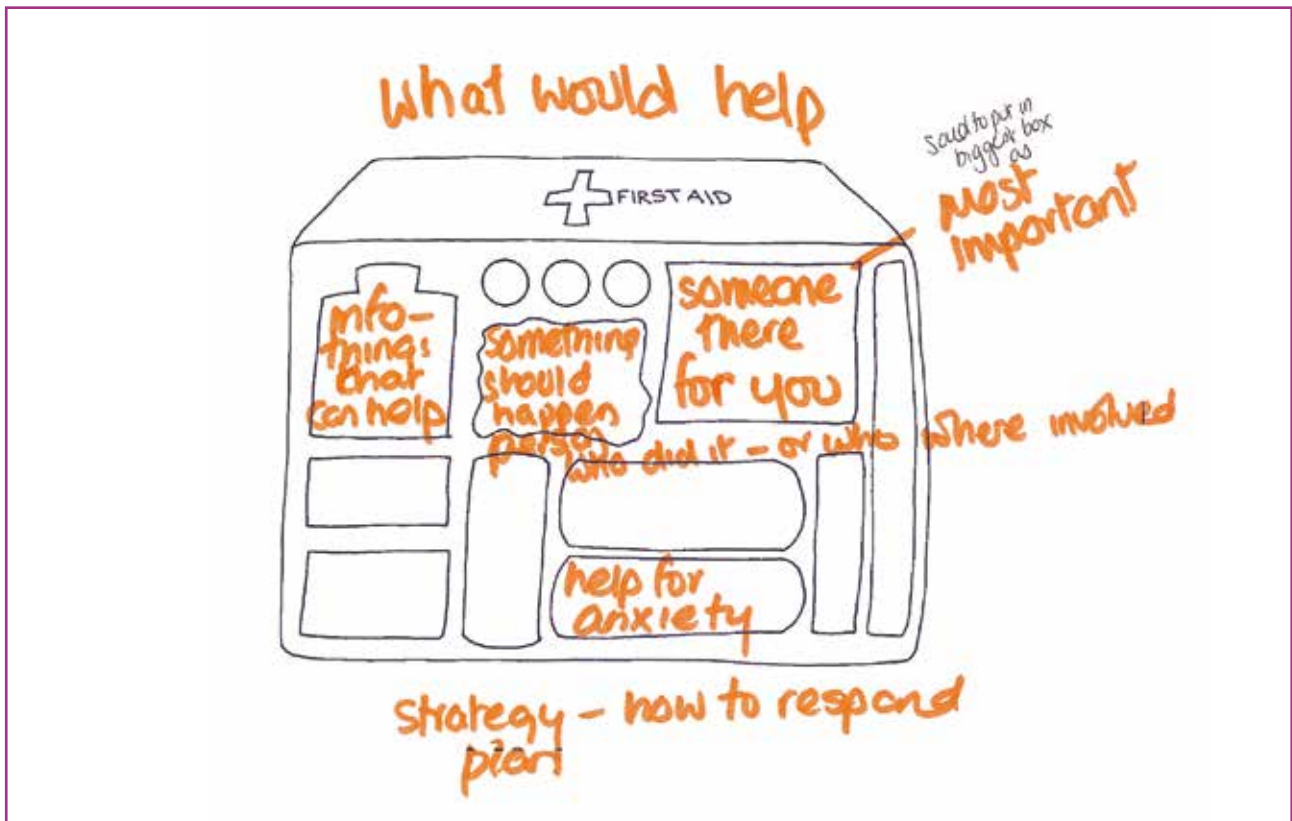 What would help
said to put in
biggest box
as
most
important
FIRST AID
info-
things
that
can help
something
should
happen
person
who did it - or who where involved
someone
there
for you
help for
anxiety
strategy - how to respond
plan